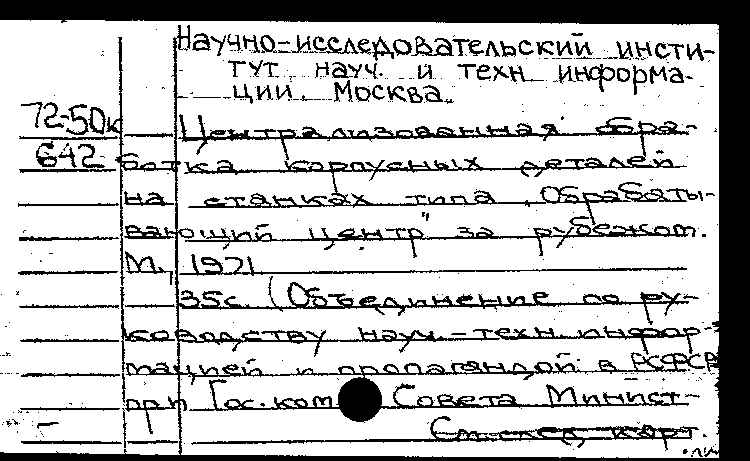 Научно-исследовательский инсти-
тут науч. и техн. информа-
ции. Москва.
72-50к Централизованная обра-
642 ботка корпусных деталей
на станках типа „Обрабаты-
вающий центр" за рубежом.
М., 1971
35с. (Объединение по ру-
ководству науч.-техн. инфор-
мацией и пропагандой в РСФСР
при Гос.ком Совета Минист-
См.след. карт.